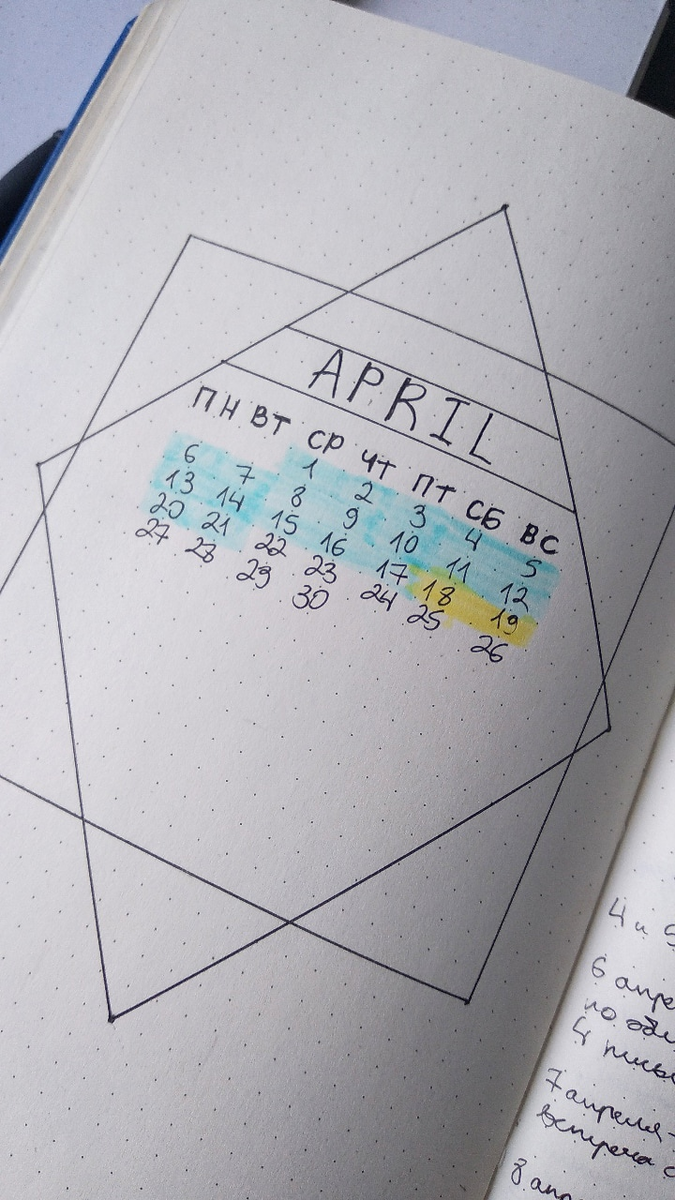 APRIL
ПН ВТ СР ЧТ ПТ СБ ВС
1 2 3 4 5
6 7 8 9 10 11 12
13 14 15 16 17 18 19
20 21 22 23 24 25 26
27 28 29 30
4 и
6
по
4
7 апреля-
встреча с
8